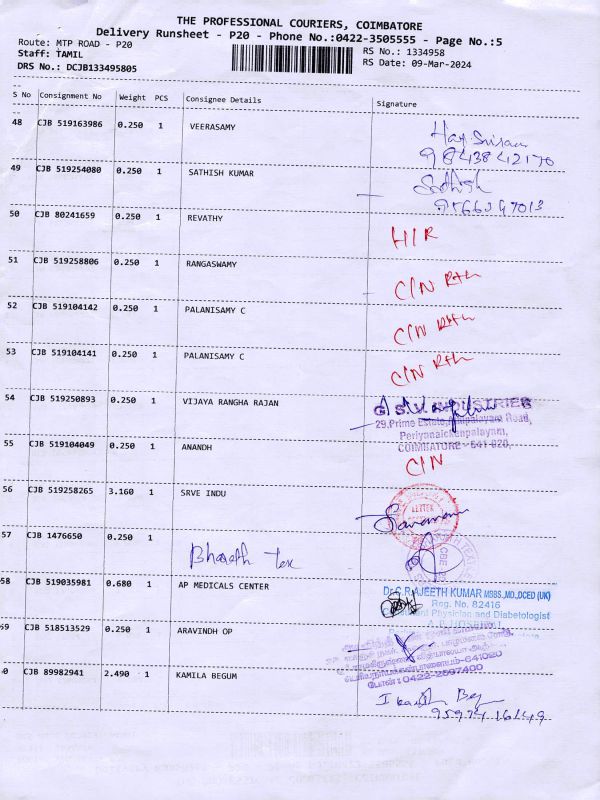 THE PROFESSIONAL COURIERS, COIMBATORE
Delivery Runsheet - P20 - Phone No.:0422-3505555 - Page No.:5
Route: MTP ROAD - P20
Staff: TAMIL
DRS No.: DCJB133495805
RS No.: 1334958
RS Date: 09-Mar-2024
S No Consignment No Weight PCS Consignee Details Signature
48 CJB 519163986 0.250 1 VEERASAMY
9843842170
49 CJB 519254080 0.250 1 SATHISH KUMAR Sathish
9566047013
50 CJB 80241659 0.250 1 REVATHY H/R
51 CJB 519258806 0.250 1 RANGASWAMY C/N
52 CJB 519104142 0.250 1 PALANISAMY C C/N
53 CJB 519104141 0.250 1 PALANISAMY C C/N
54 CJB 519250893 0.250 1 VIJAYA RANGHA RAJAN
29,Prime Estate, Road,
Periyanaickenpalayam,
COIMBATORE - 641 020.
55 CJB 519104049 0.250 1 ANANDH C/N
56 CJB 519258265 3.160 1 SRVE INDU
57 CJB 1476650 0.250 1 Bharath Tex
58 CJB 519035981 0.680 1 AP MEDICALS CENTER
Dr.C.RAJEETH KUMAR MBBS.,MD.,DCED (UK)
Reg. No. 82416
Physician and Diabetologist
59 CJB 518513529 0.250 1 ARAVINDH OP
641020
போன் : 0422-2697400
60 CJB 89982941 2.490 1 KAMILA BEGUM